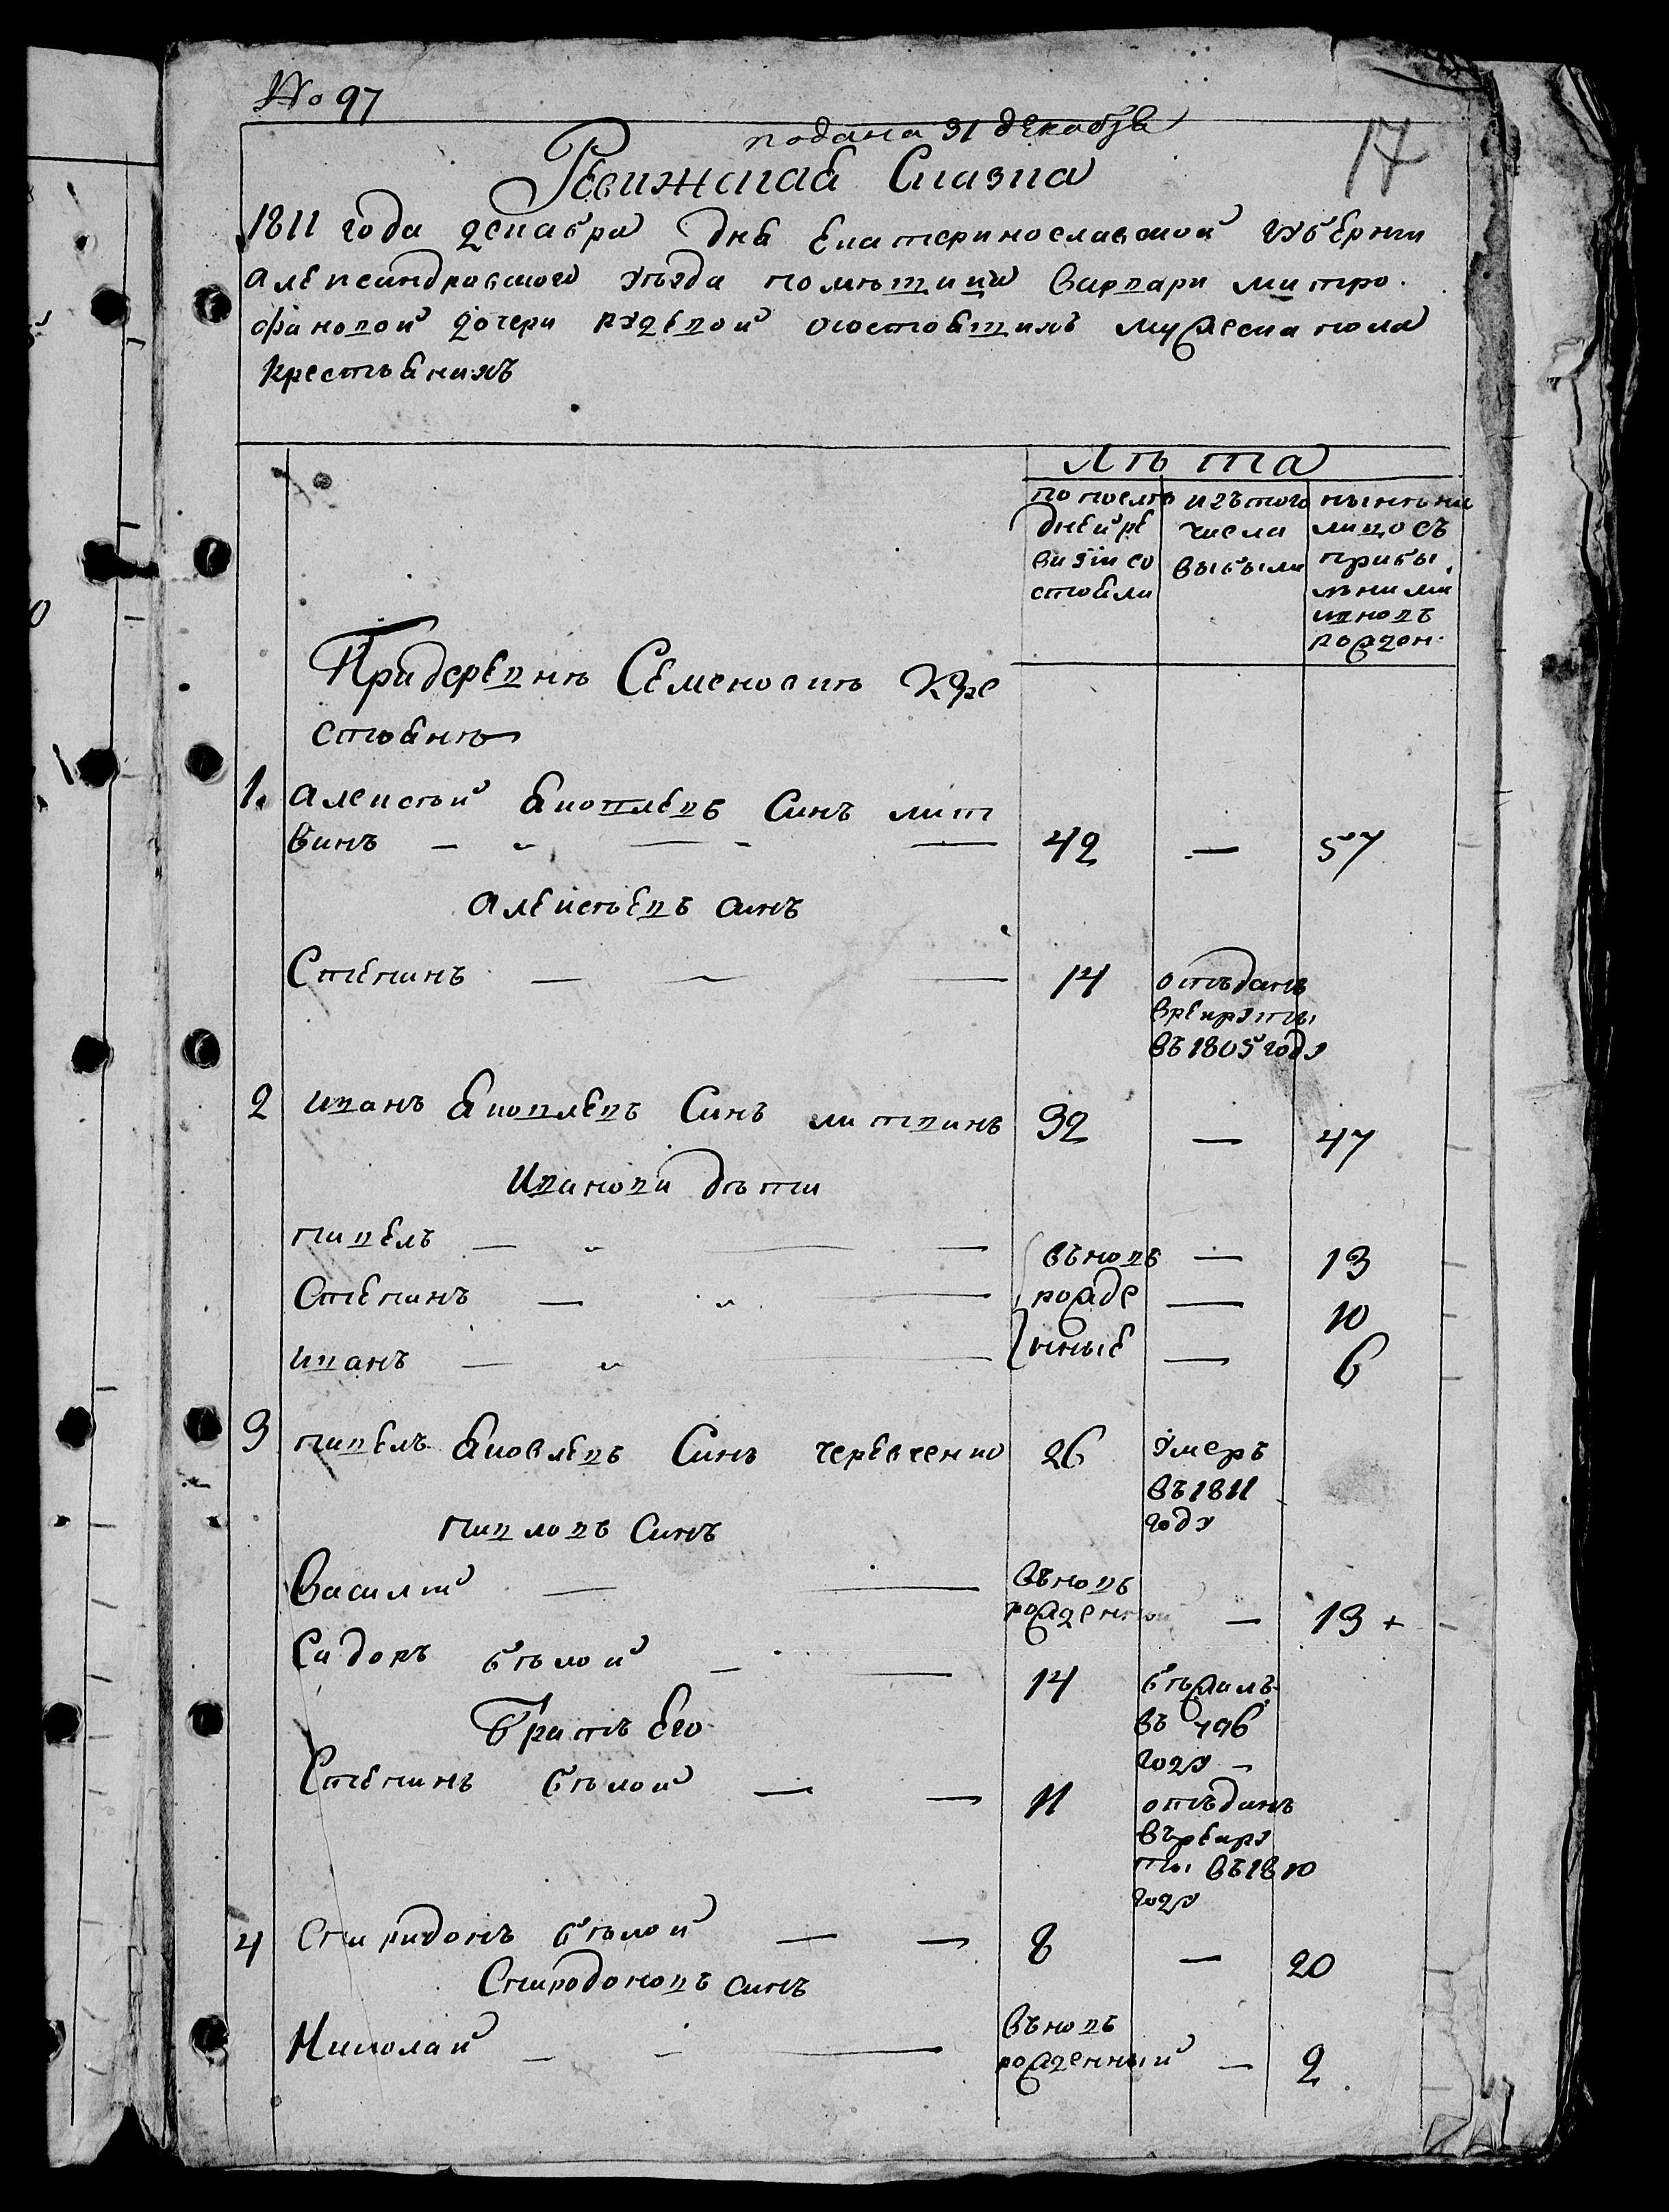 № 97
подана 31 декабря
17
Ревижская Сказка
1811 года декабря дня Екатеринославской губернии
Александровского уезда помѣщици варвари митро
фановой дочери состоящихъ мужеска пола
крестьянихъ
Лѣта
по послѣ
дней ре
визіи со
стояли
изъ того
числа
выбыли
нынѣ на
лицо съ
прибы
лыми
и вновь
рожден
При деревнѣ Семеновкѣ Кре
стьянъ
1. Алексѣй Яковлевъ Синъ лит
винъ — — — — 42 — 57
Алексѣевъ синъ
Степанъ — — — 14 отъданъ
в рекруты
въ 1805 году
2 Иванъ Яковлевъ Синъ литвинъ 32 — 47
Иванови дѣти
Павелъ — — — — вновь — 13
Степанъ — — — рожде — 10
Иванъ — — — нные — 6
3 Павелъ Яковлевъ Синъ черевченко 26 умеръ
въ 1811
году
Павловъ Синъ
Василій — — вновь
рожденной — 13 +
Сидоръ бѣлой — — 14 бѣжалъ
въ 796
году —
Братъ Его
Степанъ бѣлой — — 11 отъданъ
въ рекру
ты въ 1810
году
4 Спиридонъ бѣлой — — 8 — 20
Спиродоновъ синъ
Николай — — — вновь
рожденный — 2